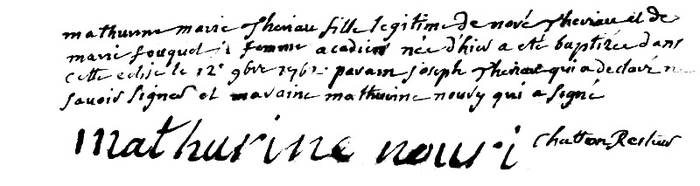 mathurine marie theriau fille legitime de noré theriau et de
marie fouquet sa femme acadien née d'hier a eté baptizée dans
cette eglise le 12e 9bre 1762 parain joseph theriau qui a declaré ne
savoir signer et maraine mathurine noury qui a signé
mathurine nouri chatton Recteur